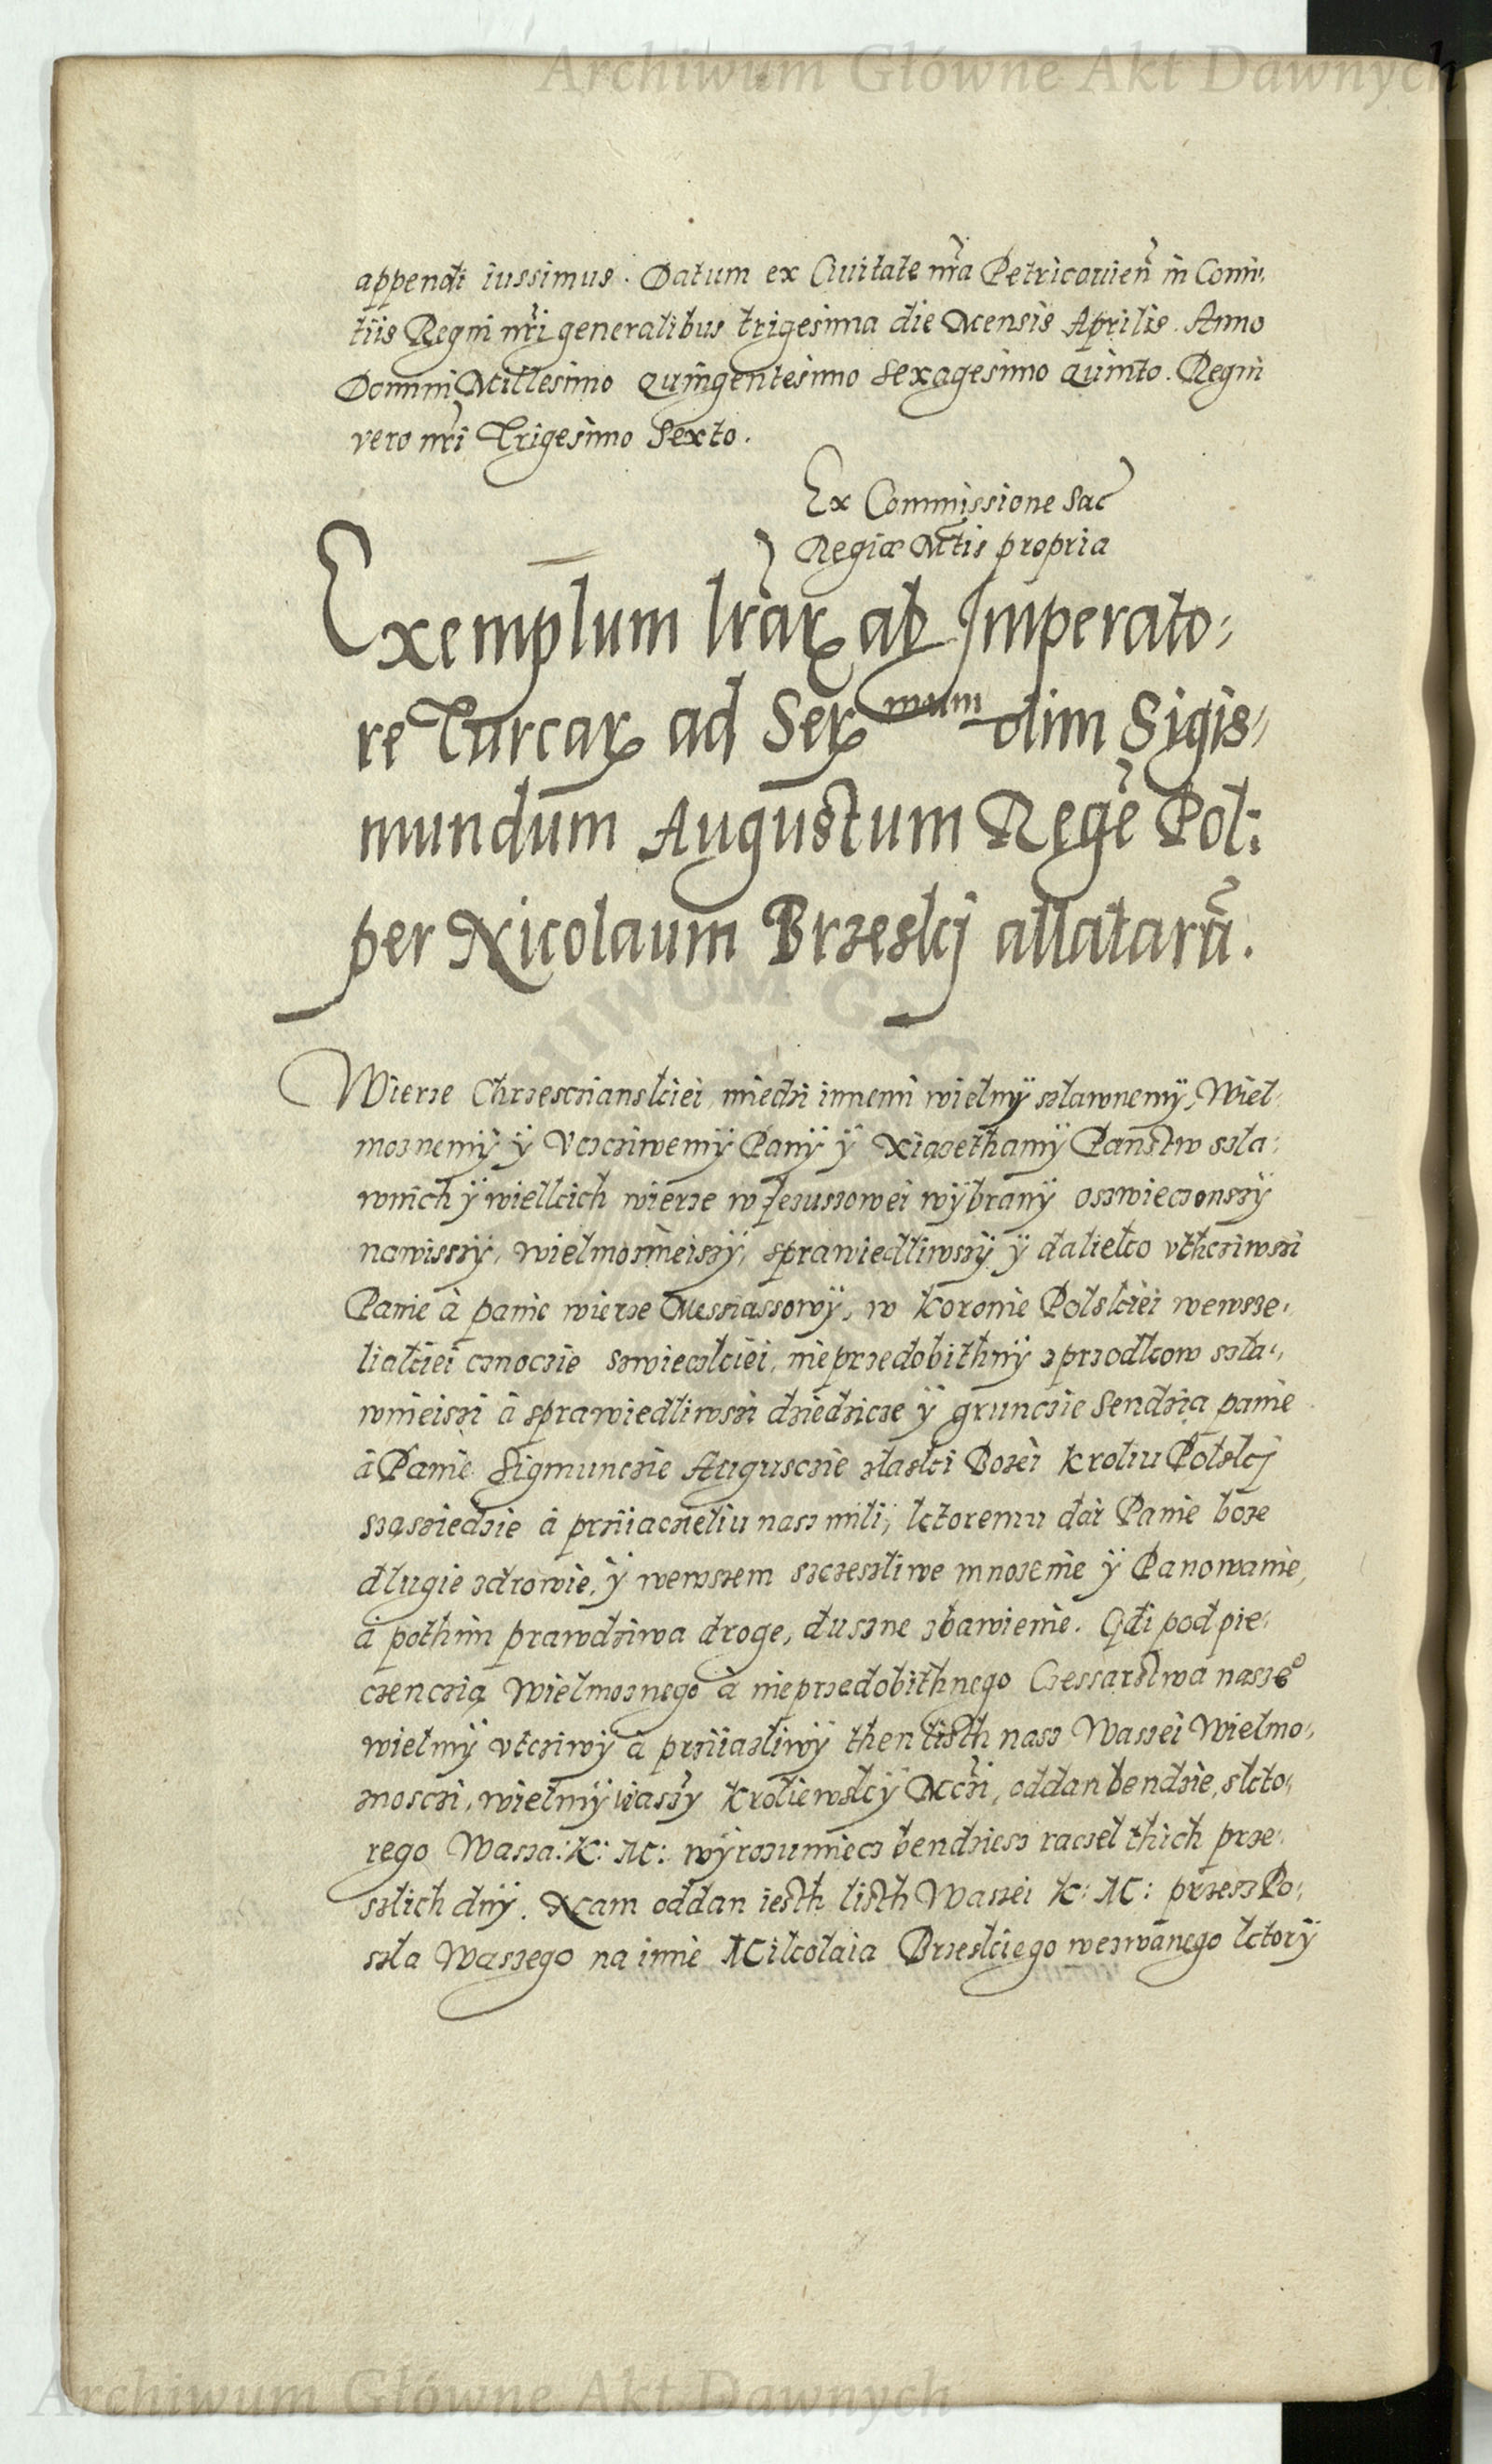 Archiwum Główne Akt Dawnych
appendi iussimus. Datum ex Ciuitate nr̃a Petricouien̄ in Comi-
tiis Regni nr̃i generalibus trigesima die Mensis Aprilis. Anno
Domini Millesimo Quingentesimo Sexagesimo quinto. Regni
vero nr̃i Trigesimo Sexto.
Ex Commissione Sac
Regiæ Mtis propria
Exemplum lr̃arꝝ ab Imperato-
re Turcarꝝ ad Serꝝmum olim Sigis-
mundum Augustum Regē Pol:
per Nicolaum Brzeskj allatarū.
Wierze Chrzesczianskiei miedzi innemi wielmÿ szlawnemÿ, Wiel-
moznemÿ ÿ Vczcziwemÿ Panÿ ÿ Xiązethamÿ Panstw szla-
wnich ÿ wielkich wierze w Jezuszowei wÿbranÿ oszwieczonszÿ
nawisszÿ, wielmozneiszÿ, sprawiedliwszÿ ÿ dalieko vthcziwszi
Panie à panie wierze Messiaszowÿ, w koronie Polskiei wewsze-
liakiei cznoczie szwieczkiei, nieprzedobithnÿ z przodkow szla-
wnieiszi à sprawiedliwszi dziedzicze ÿ grunczie Sendzią panie
à Panie Sigmunczie Auguscie złaski Bozei kroliu Polskj
sząsziedzie à prziiaczieliu nasz mili, ktoremu dai Panie boze
dlugie zdrowie, ÿ wewszem szczeszliwe mnozenie ÿ Panowanie,
à pothim prawdziwa droge, duszne zbawienie. Gdi pod pie-
czenczią wielmoznego à nieprzedobithnego Czessarstwa nasze⁰
wielmÿ vtcziwÿ à prziiazliwÿ then listh nasz Waszei Wielmo-
znosczi, wielmÿ waszÿ kroliewskÿ Mczi, oddan bendzie, skto-
rego Wasza: K: M: wÿrozumiecz bendziesz raczel thich prze-
szlich dnÿ. Nam oddan iesth listh Waszei K: M: przesz Po-
szla Waszego na imie Mikolaia Brzeskiego wezwanego ktorÿ
Archiwum Główne Akt Dawnych